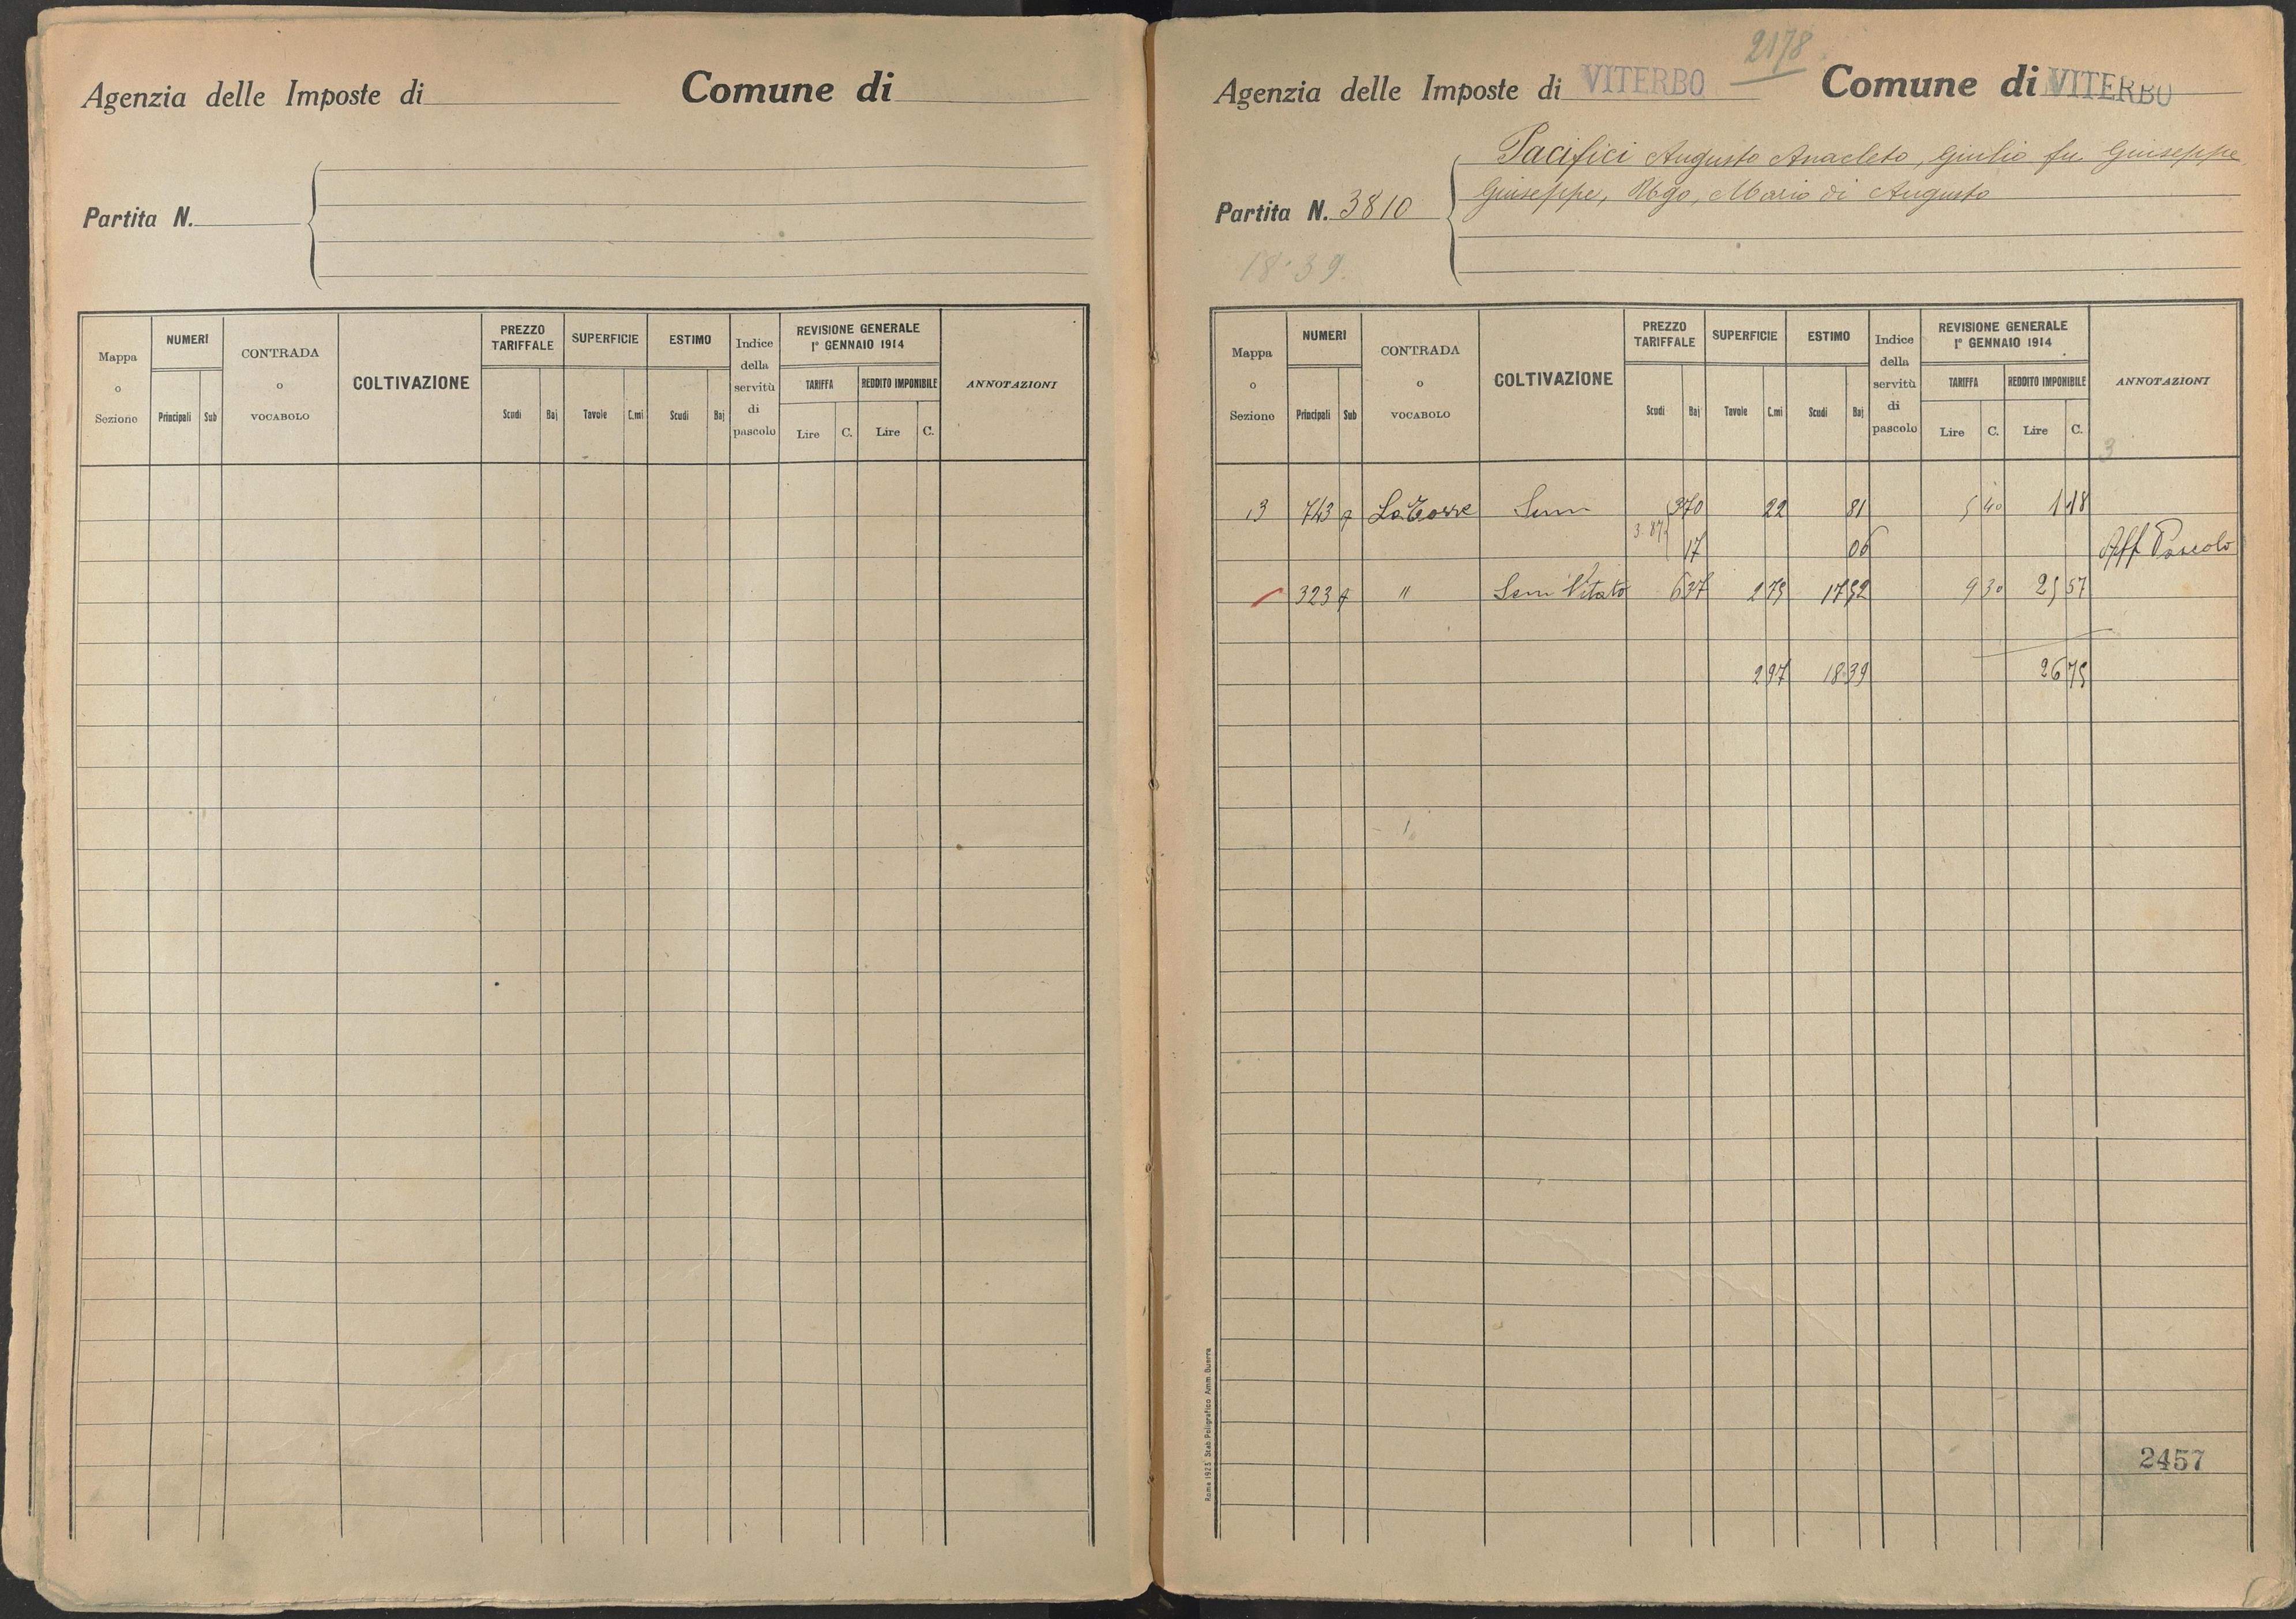 Agenzia delle Imposte di
Comune di
Partita N.
Mappa o Sezione
NUMERI
Principali Sub
CONTRADA o VOCABOLO
COLTIVAZIONE
PREZZO TARIFFALE
Scudi Baj
SUPERFICIE
Tavole C.mi
ESTIMO
Scudi Baj
Indice della servitù di pascolo
REVISIONE GENERALE
1° GENNAIO 1914
TARIFFA REDDITO IMPONIBILE
Lire C. Lire C.
ANNOTAZIONI
2178
Agenzia delle Imposte di VITERBO
Comune di VITERBO
Pacifici Augusto Anacleto, Giulio fu Giuseppe
Giuseppe, Ugo, Mario di Augusto
Partita N. 3810
18.39.
Mappa o Sezione
NUMERI
Principali Sub
CONTRADA o VOCABOLO
COLTIVAZIONE
PREZZO TARIFFALE
Scudi Baj
SUPERFICIE
Tavole C.mi
ESTIMO
Scudi Baj
Indice della servitù di pascolo
REVISIONE GENERALE
1° GENNAIO 1914
TARIFFA REDDITO IMPONIBILE
Lire C. Lire C.
ANNOTAZIONI
3
13 743 La Torre Sem 3 70 22 81 5 40 1 18
3.87 17 06 Aff Pascolo
323 " Sem Vitato 6 37 2 75 17 52 9 30 25 57
2 97 18 39 26 75
Roma 1925 Stab. Poligrafico Amm. Guerra
2457